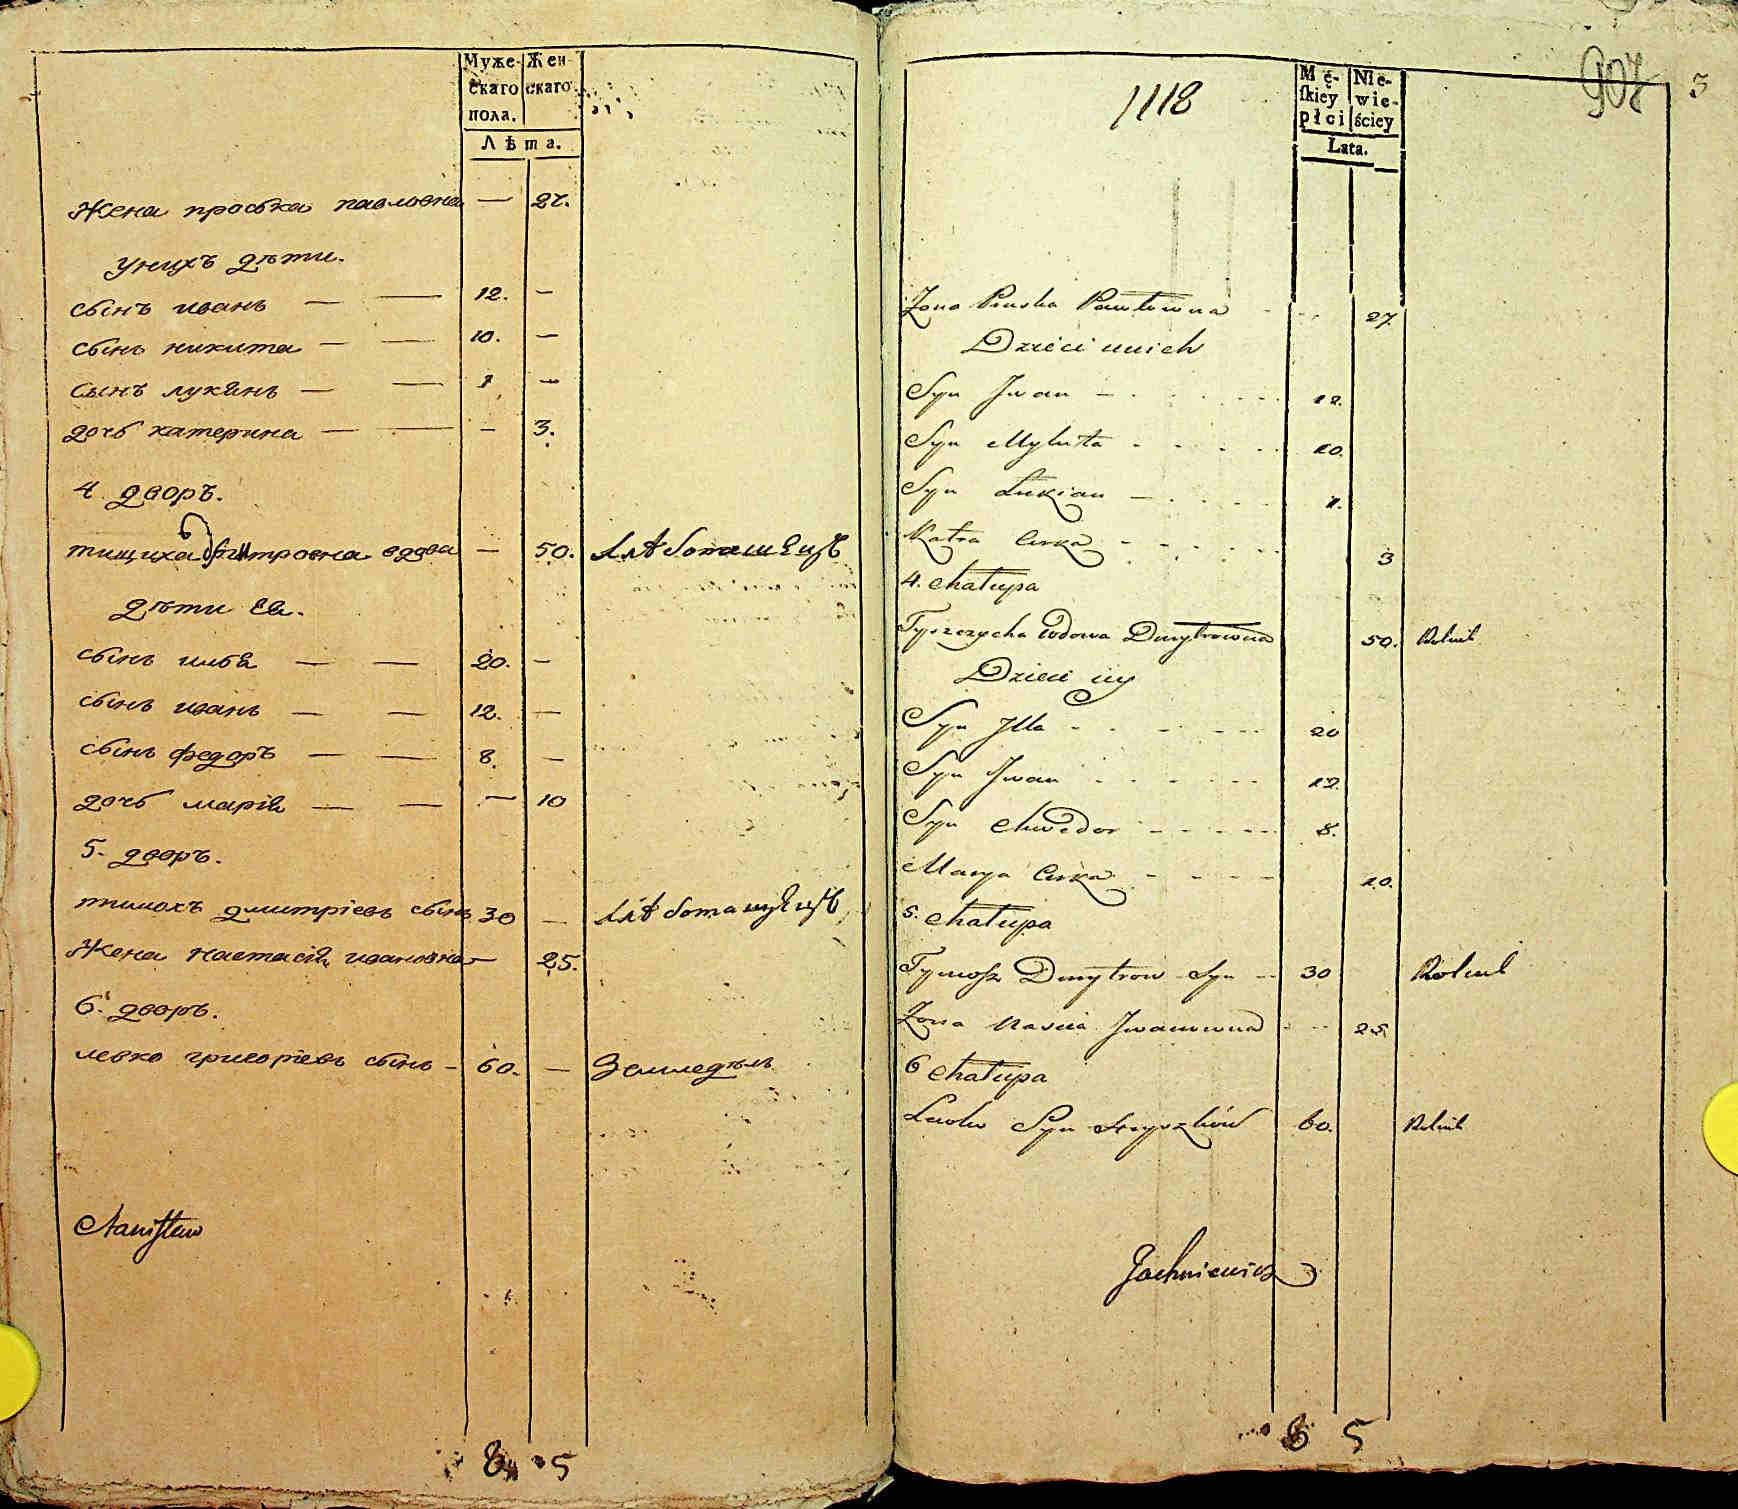 Муже- Жен-
скаго скаго
пола.
Лѣта.
Жена проська павловна — 27.
унихъ дѣти.
сынъ иванъ — — 12. —
сынъ никита — — 10. —
сынъ лукянъ — — 1 —
дочь катерина — — — 3.
4. дворъ.
тищиха дмитровна вдова — 50.
дѣти ея.
сынъ илья — — 20. —
сынъ иванъ — — 12. —
сынъ федоръ — — 8. —
дочь марія — — — 10
5. дворъ.
тимохъ дмитріевъ сынъ 30 —
Жена настасія ивановна — 25.
6. дворъ.
левко григоріевъ сынъ — 60. — Земледѣль
Stanisław
8 5
1118
907
3
Mę- Nie-
skiey wie-
płci ściey
Lata.
Żona Pruska Pawłowna 27.
Dzieci unich
Syn Jwan 12.
Syn Mykita 10.
Syn Łukian 1.
Katra Curka 3
4. Chałupa
Tyszczycha Wdowa Dmytrowna 50. Rolnik
Dzieci iey
Syn Jlla 20
Syn Jwan 12
Syn Chwedor 8.
Marya Curka 10.
5. Chałupa
Tymosz Dmytrow Syn 30 Rolnik
Żona Nascia Jwanowna 25.
6 Chałupa
Lewko Syn Hryszków 60. Rolnik
Jachniewicz
8 5